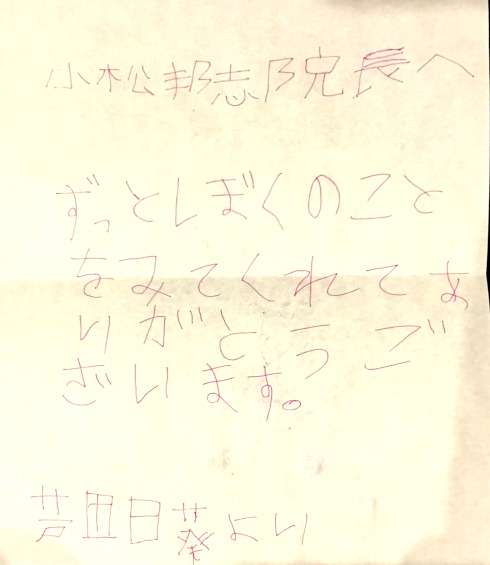 小松邦志院長へ
ずっとしぼくのこと
をみてくれてあ
りがとうご
ざいます。
芦田日葵より